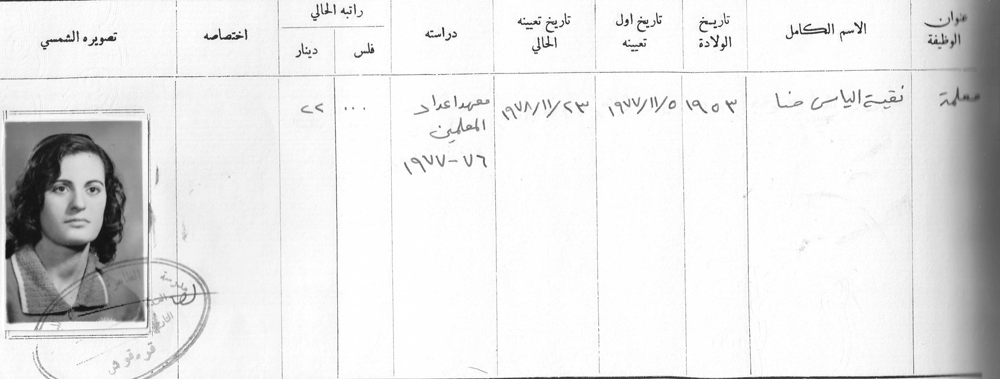 عنوان الوظيفة
الاسم الكامل
تاريخ الولادة
تاريخ اول تعيينه
تاريخ تعيينه الحالي
دراسته
راتبه الحالي
فلس
دينار
اختصاصه
تصويره الشمسي
معلمة
نقية الياس حنا
١٩٥٣
١٩٧٧/١١/٥
١٩٧٨/١١/٢٣
معهد اعداد
المعلمين
١٩٧٧-٧٦
٠٠٠
٢٢
مدرسة
قره قوش